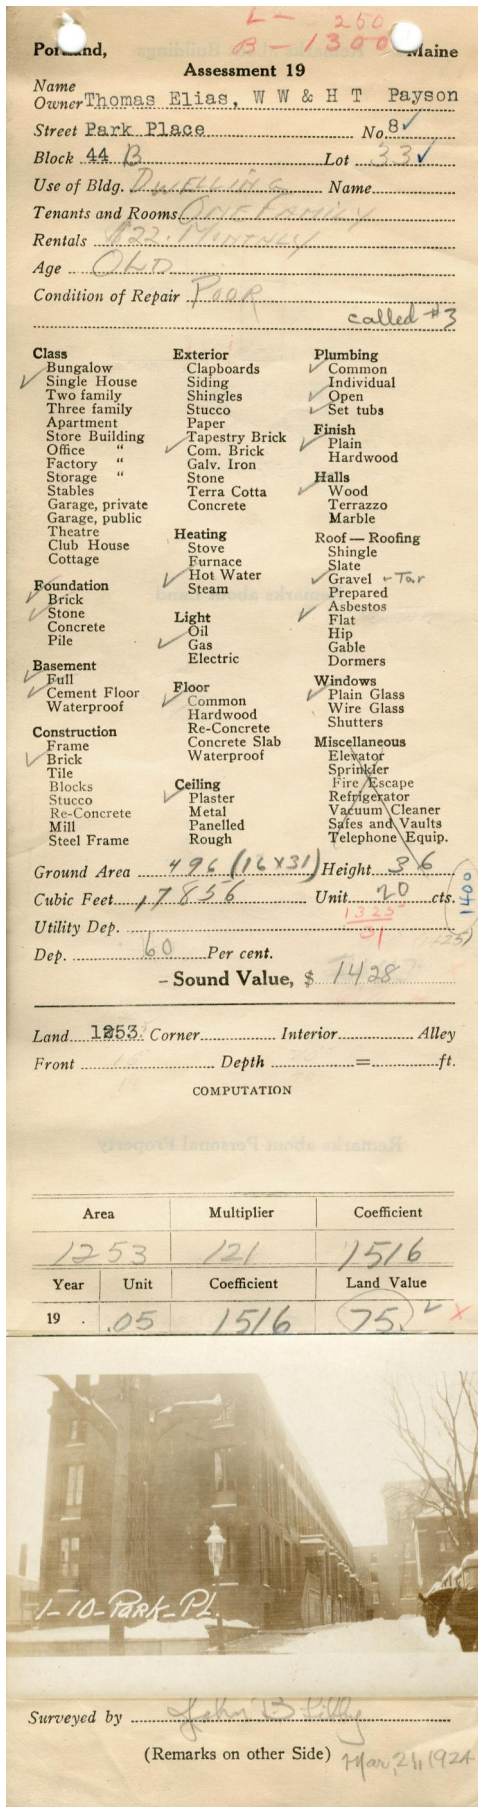 L - 250
B - 1300
Portland, Maine
Assessment 19
Name
Owner Thomas Elias, W W & H T Payson
Street Park Place No. 8 ✓
Block 44 B Lot 33 ✓
Use of Bldg. DWELLING Name
Tenants and Rooms ONE FAMILY
Rentals $22. MONTHLY
Age OLD
Condition of Repair POOR
called #3
Class
Bungalow
✓ Single House
Two family
Three family
Apartment
Store Building
Office "
Factory "
Storage "
Stables
Garage, private
Garage, public
Theatre
Club House
Cottage
Foundation
✓ Brick
✓ Stone
Concrete
Pile
Basement
✓ Full
✓ Cement Floor
Waterproof
Construction
Frame
✓ Brick
Tile
Blocks
Stucco
Re-Concrete
Mill
Steel Frame
Exterior
Clapboards
Siding
Shingles
Stucco
Paper
Tapestry Brick
✓ Com. Brick
Galv. Iron
Stone
Terra Cotta
Concrete
Heating
Stove
Furnace
✓ Hot Water
Steam
Light
Oil
✓ Gas
Electric
Floor
✓ Common
Hardwood
Re-Concrete
Concrete Slab
Waterproof
Ceiling
✓ Plaster
Metal
Panelled
Rough
Plumbing
✓ Common
Individual
✓ Open
✓ Set tubs
Finish
✓ Plain
Hardwood
Halls
✓ Wood
Terrazzo
Marble
Roof — Roofing
Shingle
Slate
✓ Gravel - Tar
Prepared
Asbestos
✓ Flat
Hip
Gable
Dormers
Windows
✓ Plain Glass
Wire Glass
Shutters
Miscellaneous
Elevator
Sprinkler
Fire Escape
Refrigerator
Vacuum Cleaner
Safes and Vaults
Telephone Equip.
Ground Area 496 (16 X 31) Height 36
Cubic Feet 17856 Unit 20 cts.
1400
1325
31
Utility Dep.
Dep. 60 Per cent.
- Sound Value, $ 1428
Land 1253. Corner Interior Alley
Front Depth = ft.
COMPUTATION
Area Multiplier Coefficient
1253 121 1516
Year Unit Coefficient Land Value
19 . .05 1516 75. ✓ x
1-10-PARK-PL.
Surveyed by John B
(Remarks on other Side) Mar, 24, 1924